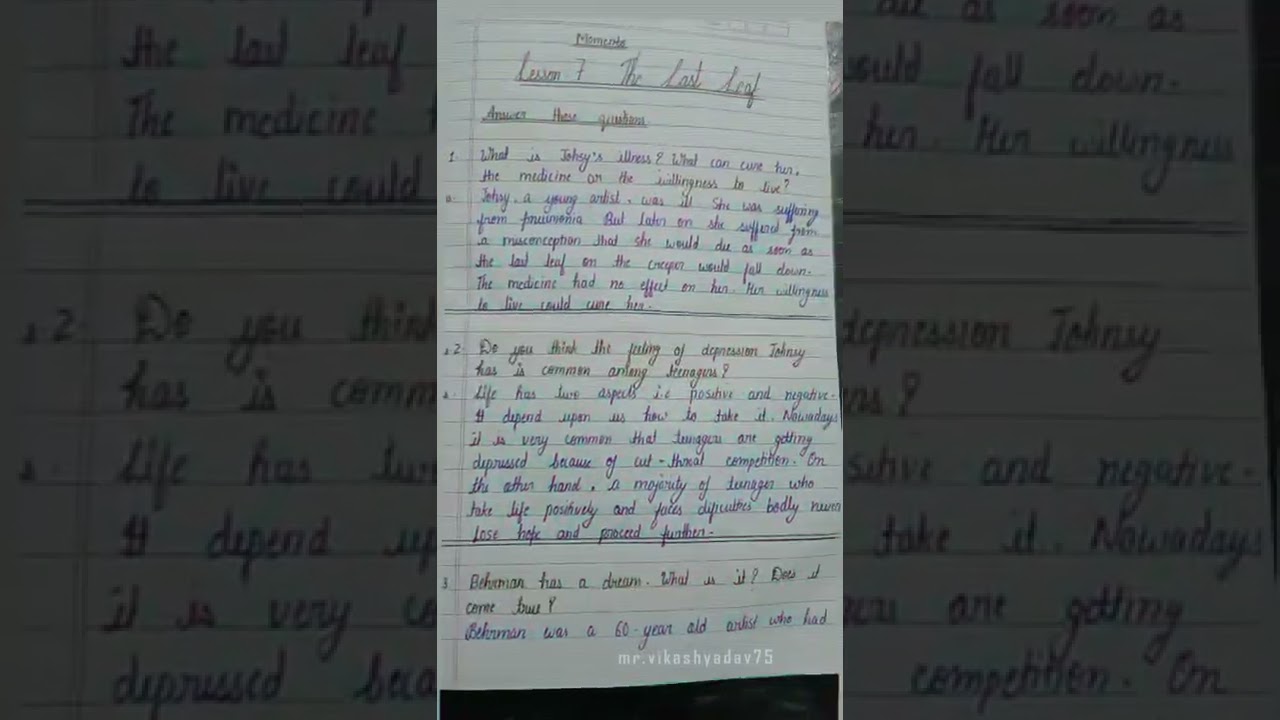 Moments
Lesson 7 The Last Leaf
Answer these questions
1. What is Johsy's illness? What can cure her,
the medicine or the willingness to live?
Johsy, a young artist, was ill. She was suffering
from pnuimonia But later on she suffered from
a misconception that she would die as soon as
the last leaf on the creeper would fall down.
The medicine had no effect on her. Her willingness
to live could cure her.
2. Do you think the feeling of depression Johnsy
has is common among teenagers?
Life has two aspects i.e positive and negative.
It depend upon us how to take it. Nowadays
it is very common that teenagers are getting
depressed because of cut-throat competition. On
the other hand, a majority of teenager who
take life positively and faces dificulties bodly never
lose hope and proceed further.
3. Behrman has a dream. What is it? Does it
come true?
Behrman was a 60-year old artist who had
mr.vikashyadav75